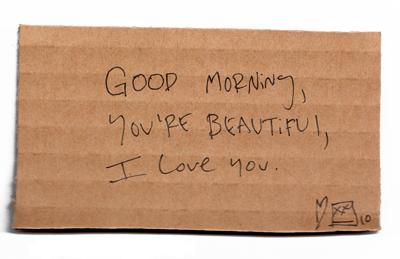 GOOD MORNiNg,
YOU'RE BEAUTiFUl,
I Love You.
xx 10